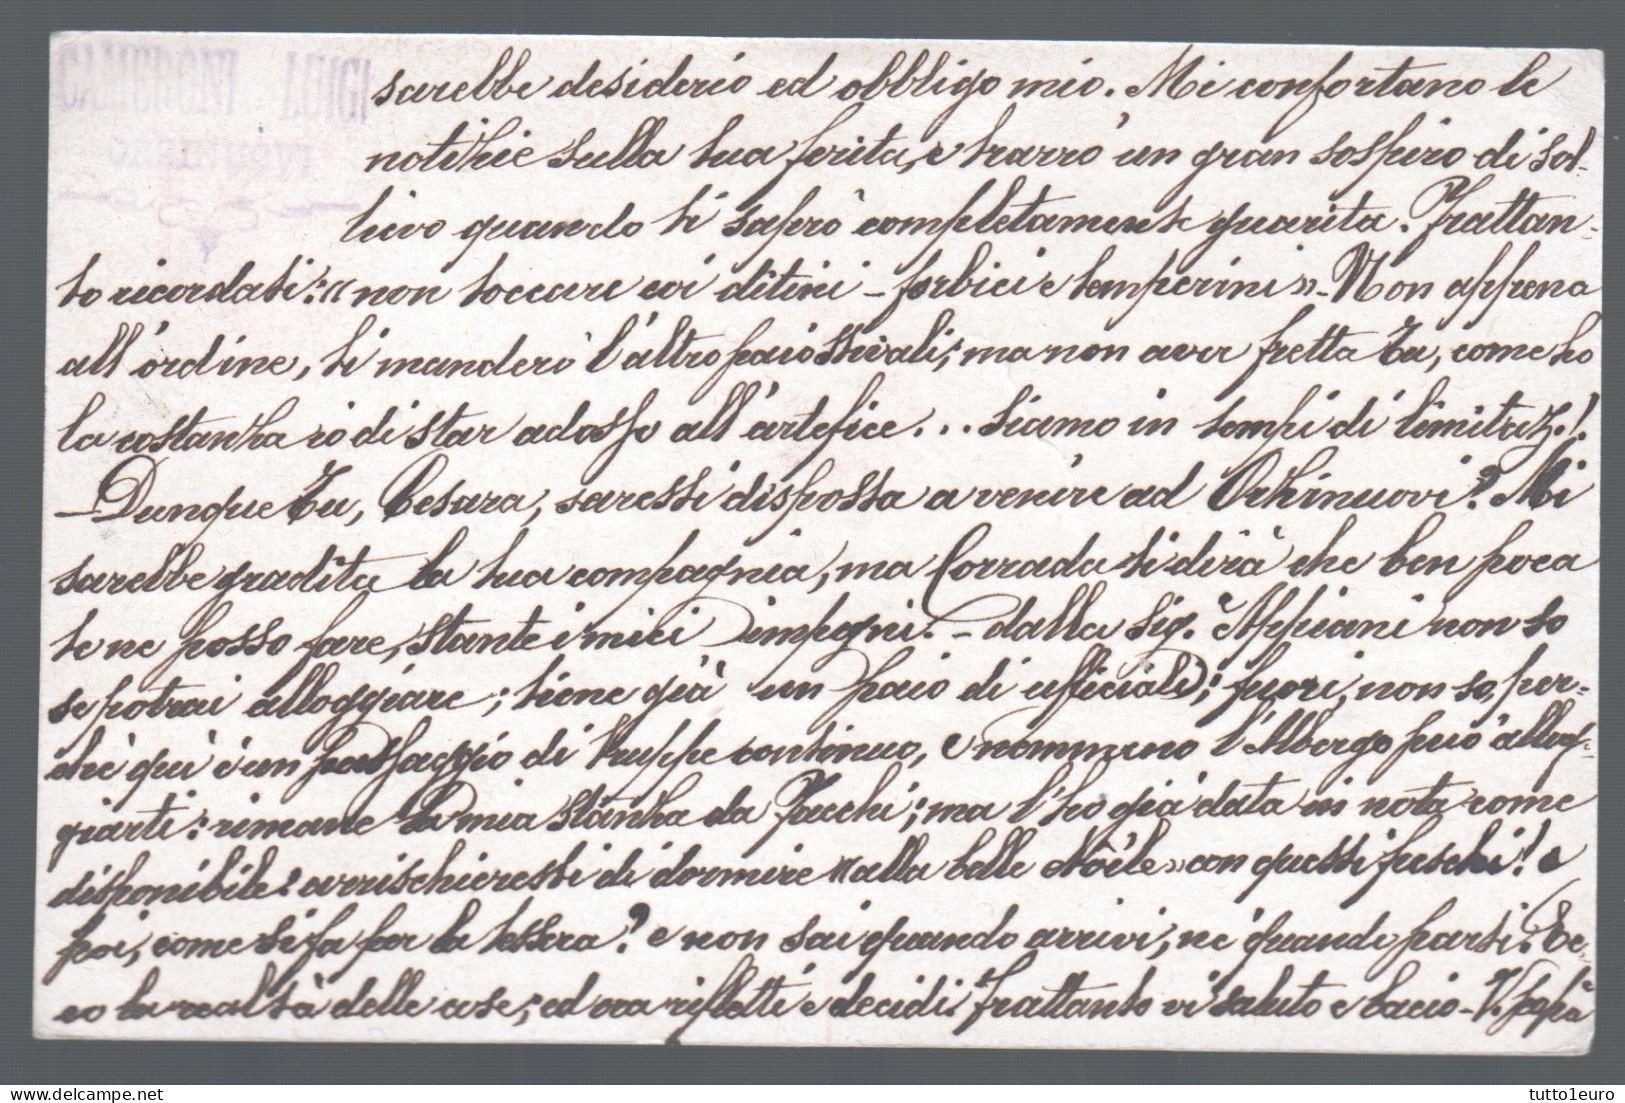 CAMERONI LUIGI
sarebbe desiderio ed obbligo mio. Mi confortano le
notizie sulla tua ferita, e trarrò un gran sospiro di sol-
lievo quando ti saprò completamente guarita. Frattan-
to ricordati: « non toccare coi ditini - forbici e temperini » - Non appena
all'ordine, ti manderò l'altro paio stivali; ma non aver fretta Tu, come ho
la costanza io di star adosso all'artefice... siamo in tempi di limitaz.!
- Dunque Tu, Cesara, saresti disposta a venire ad Orzinuovi? Mi
sarebbe gradita la tua compagnia, ma Corrada ti dirà che ben poca
te ne posso fare, stante i miei impegni. - dalla Sig.ª Appiani non so
se potrai alloggiare; tiene già un paio di ufficiali; fuori, non so, per-
chè quì è un passaggio di truppe continuo, e nemmeno l'Albergo può allog-
giarti: rimane la mia stanza da Zacchi; ma l'ho già data in nota come
disponibile: arrischieresti di dormire « alla belle étoile » con questi freschi! e
poi, come si fa per la tessera? e non sai quando arrivi, nè quando parti. Ec-
co la realtà delle cose; ed ora rifletti e decidi. Frattanto vi saluto e bacio - V. papà
tutto1euro